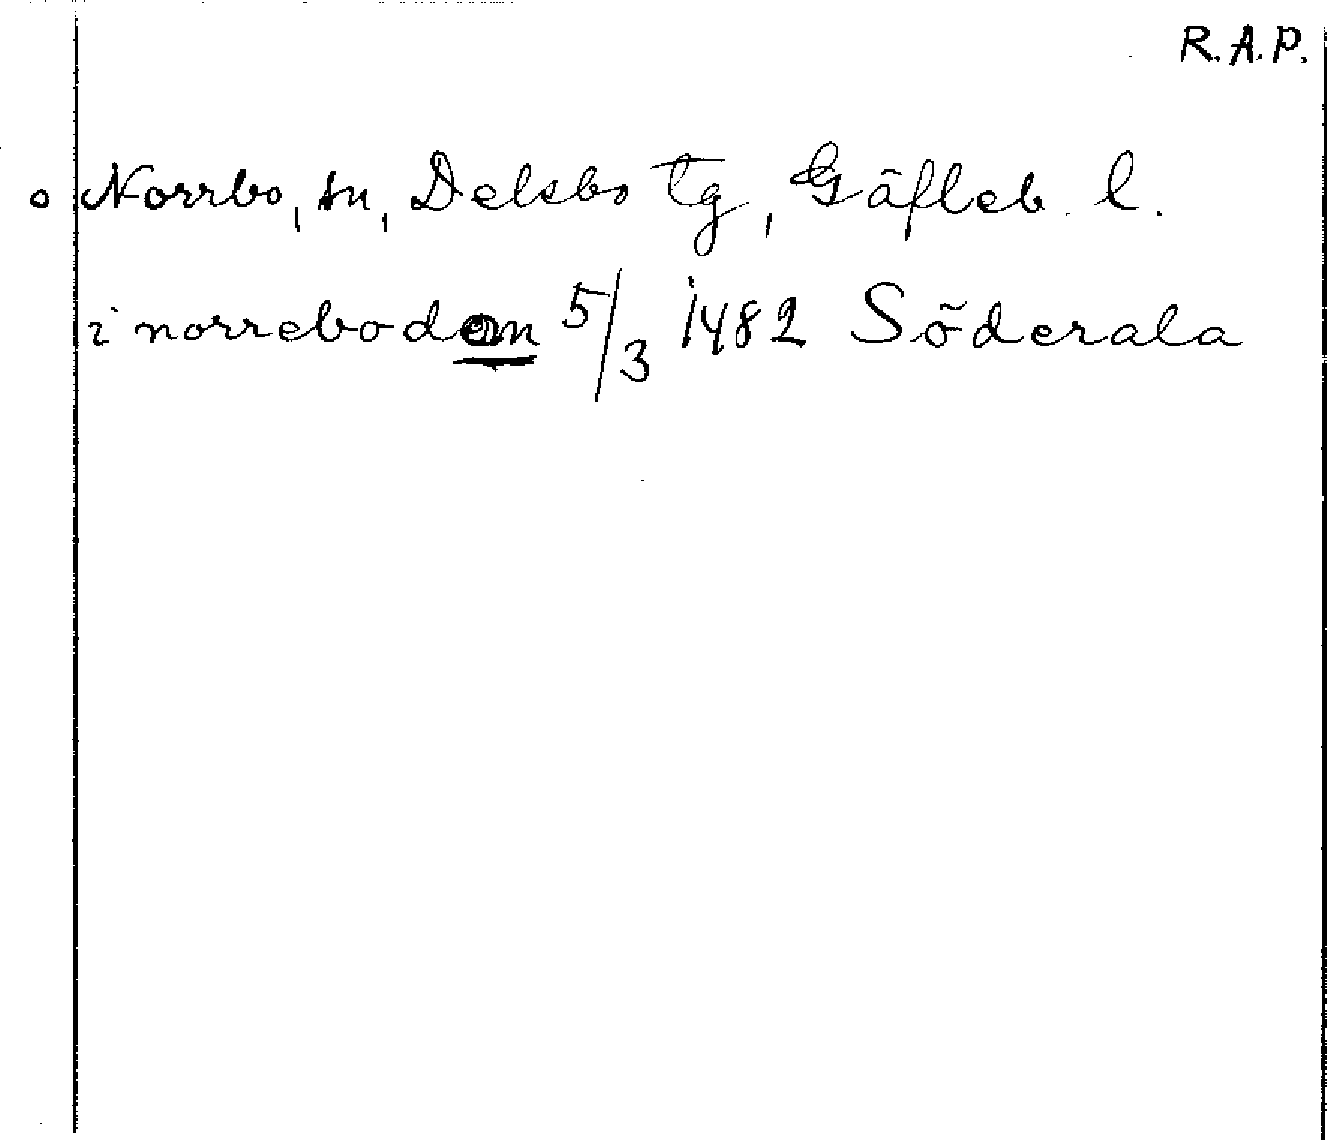 R.A.P.
o Norrbo, sn, Delsbo tg, Gäfleb. l.
i norrebodom 5/3 1482 Söderala